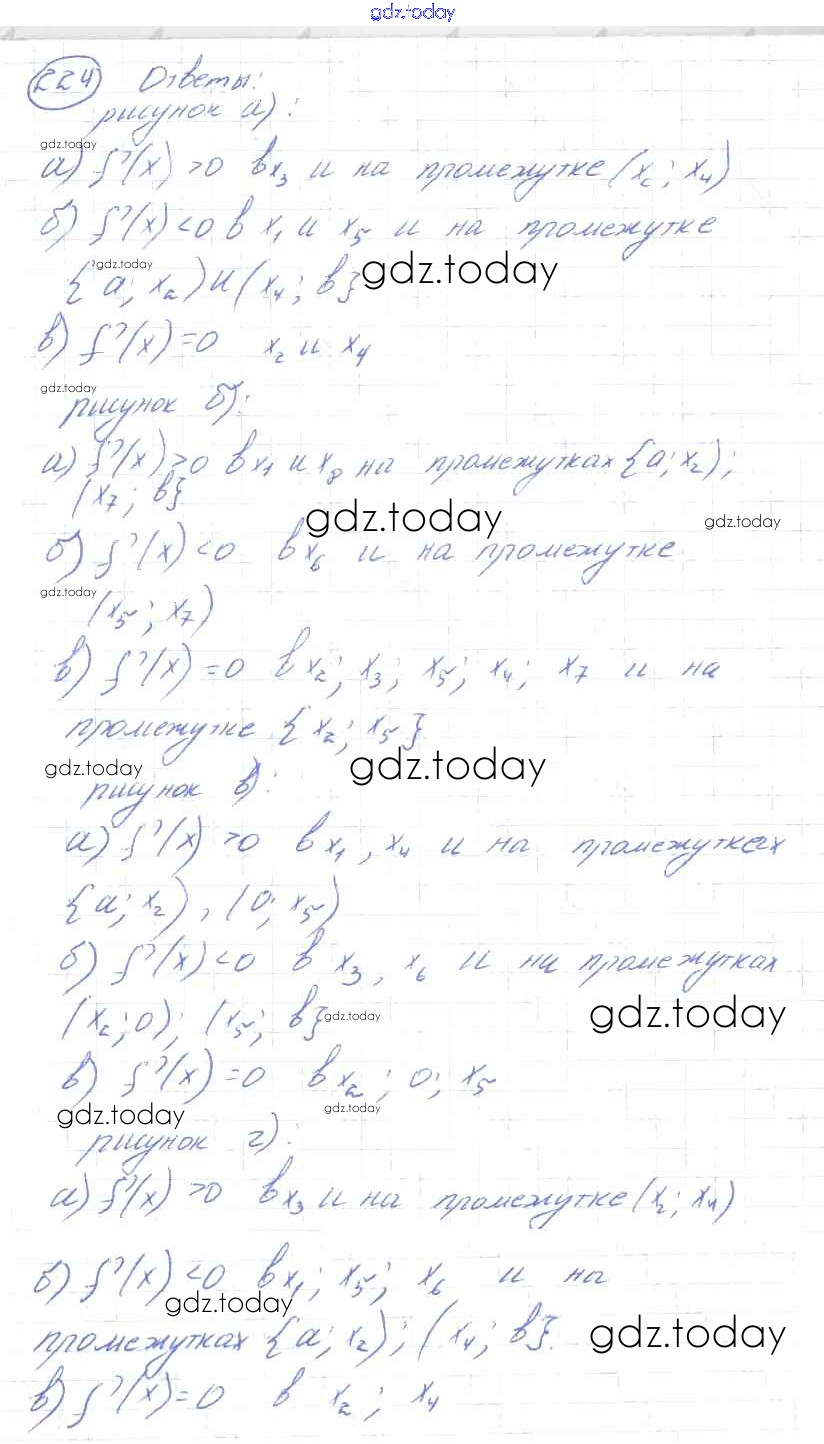 gdz.today
224 Ответы:
рисунок а):
gdz.today
а) f'(x) >0 в x₃ и на промежутке (x₂; x₄)
б) f'(x) <0 в x₁ и x₅ и на промежутке
gdz.today
{a; x₂) и (x₄; b} gdz.today
в) f'(x) =0 x₂ и x₄
gdz.today
рисунок б):
а) f'(x) >0 в x₁ и x₈ на промежутках {a; x₂);
(x₇; b}
gdz.today gdz.today
б) f'(x) <0 в x₆ и на промежутке
gdz.today
(x₅; x₇)
в) f'(x) =0 в x₂; x₃; x₅; x₄; x₇ и на
промежутке {x₂; x₅}
gdz.today gdz.today
рисунок в):
а) f'(x) >0 в x₁, x₄ и на промежутках
{a; x₂), (0; x₅)
б) f'(x) <0 в x₃, x₆ и на промежутках
(x₂; 0); (x₅; b} gdz.today gdz.today
в) f'(x) =0 в x₂; 0; x₅
gdz.today gdz.today
рисунок г):
а) f'(x) >0 в x₃ и на промежутке (x₂; x₄)
б) f'(x) <0 в x₁; x₅; x₆ и на
gdz.today
промежутках {a; x₂); (x₄; b}. gdz.today
в) f'(x) =0 в x₂; x₄